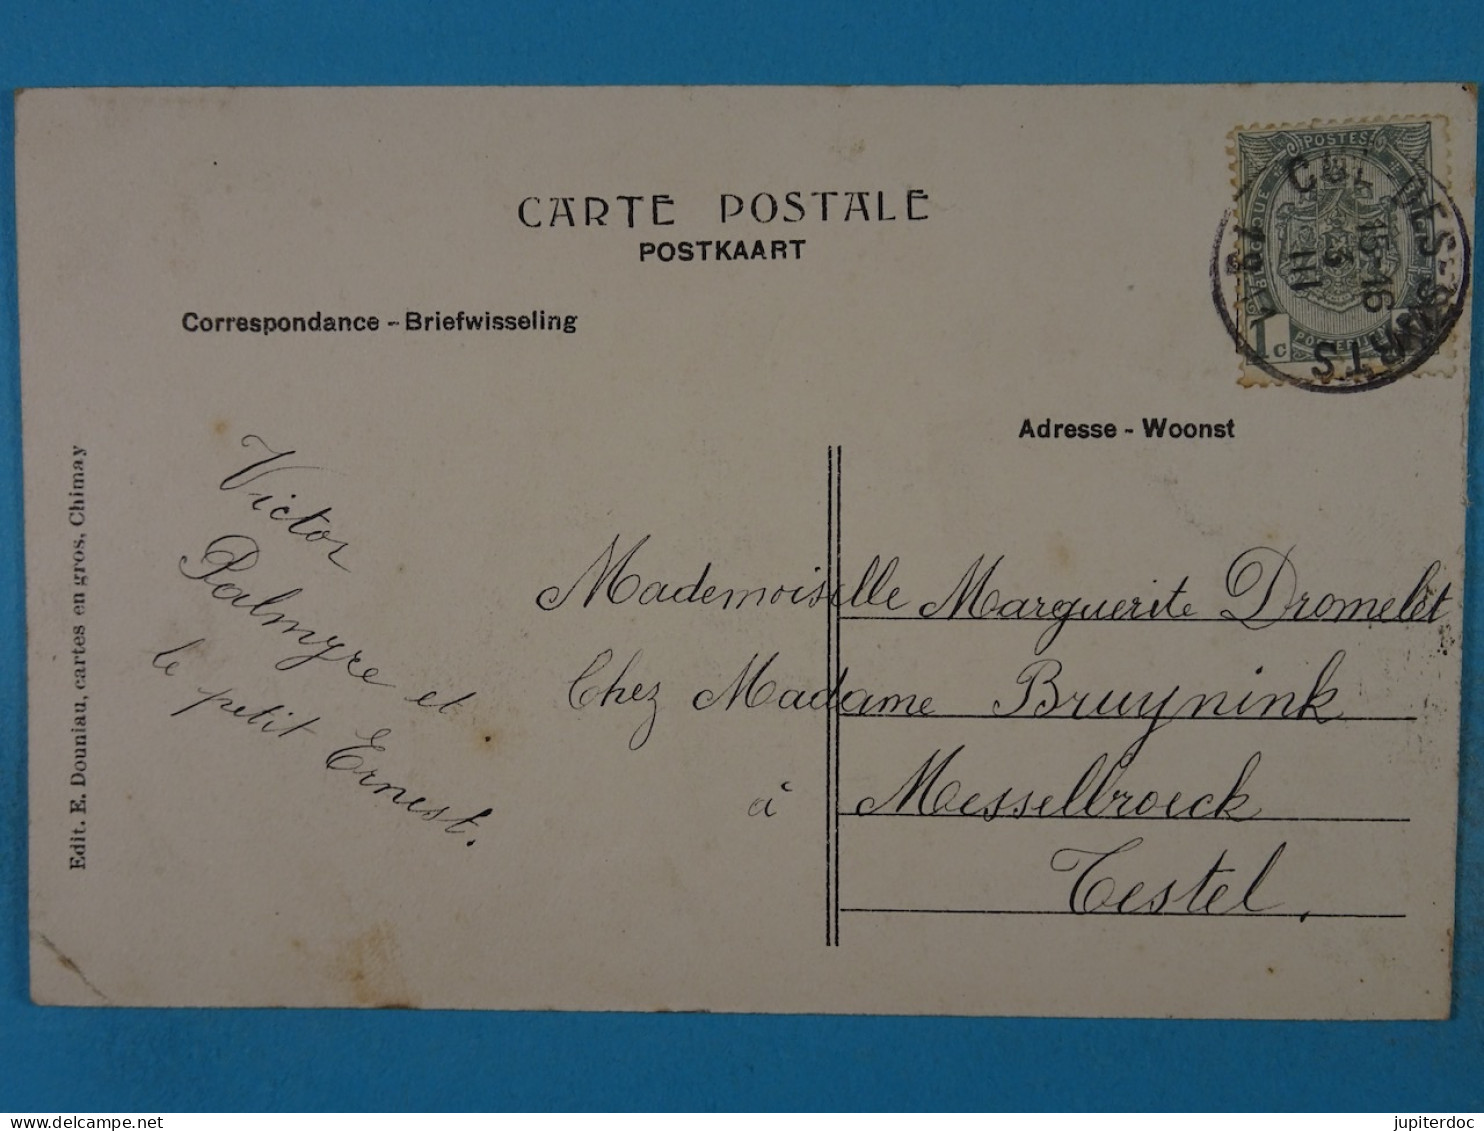 CARTE POSTALE
POSTKAART
Correspondance - Briefwisseling
POSTES
1c
15-16
23
III
Adresse - Woonst
Victor
Palmyre et
le petit Ernest.
Mademoiselle Marguerite Dromelet
Chez Madame Bruynink
à Messelbroeck
Testel.
Edit. E. Douniau, cartes en gros, Chimay
delcampe.net
jupiterdoc